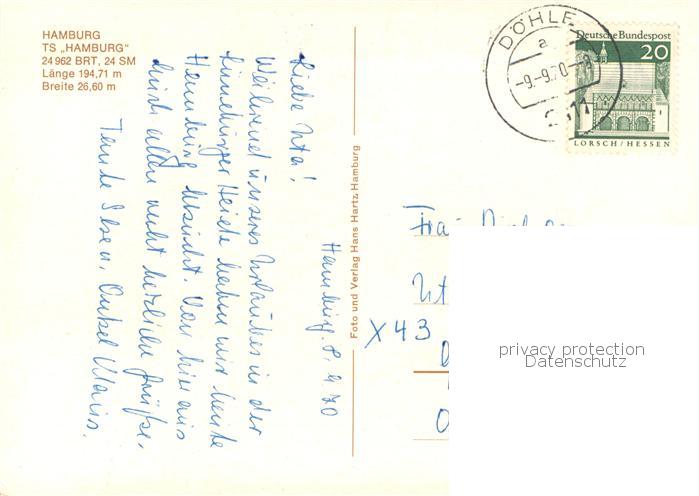 HAMBURG
TS „HAMBURG“
24 962 BRT, 24 SM
Länge 194,71 m
Breite 26,60 m
DÖHLE
a
-9.-9.70-
2111
Deutsche Bundespost
20
LORSCH/HESSEN
Hamburg, 8. 9. 70
Liebe Uta!
Während unseres Urlaubes in der
Lüneburger Heide haben wir heute
Hamburg besucht. Von hier aus
euch allen recht herzliche Grüße.
Tante Elsen, Onkel Klaus.
Foto und Verlag Hans Hartz Hamburg
Frau
Ut
X 43
privacy protection
Datenschutz